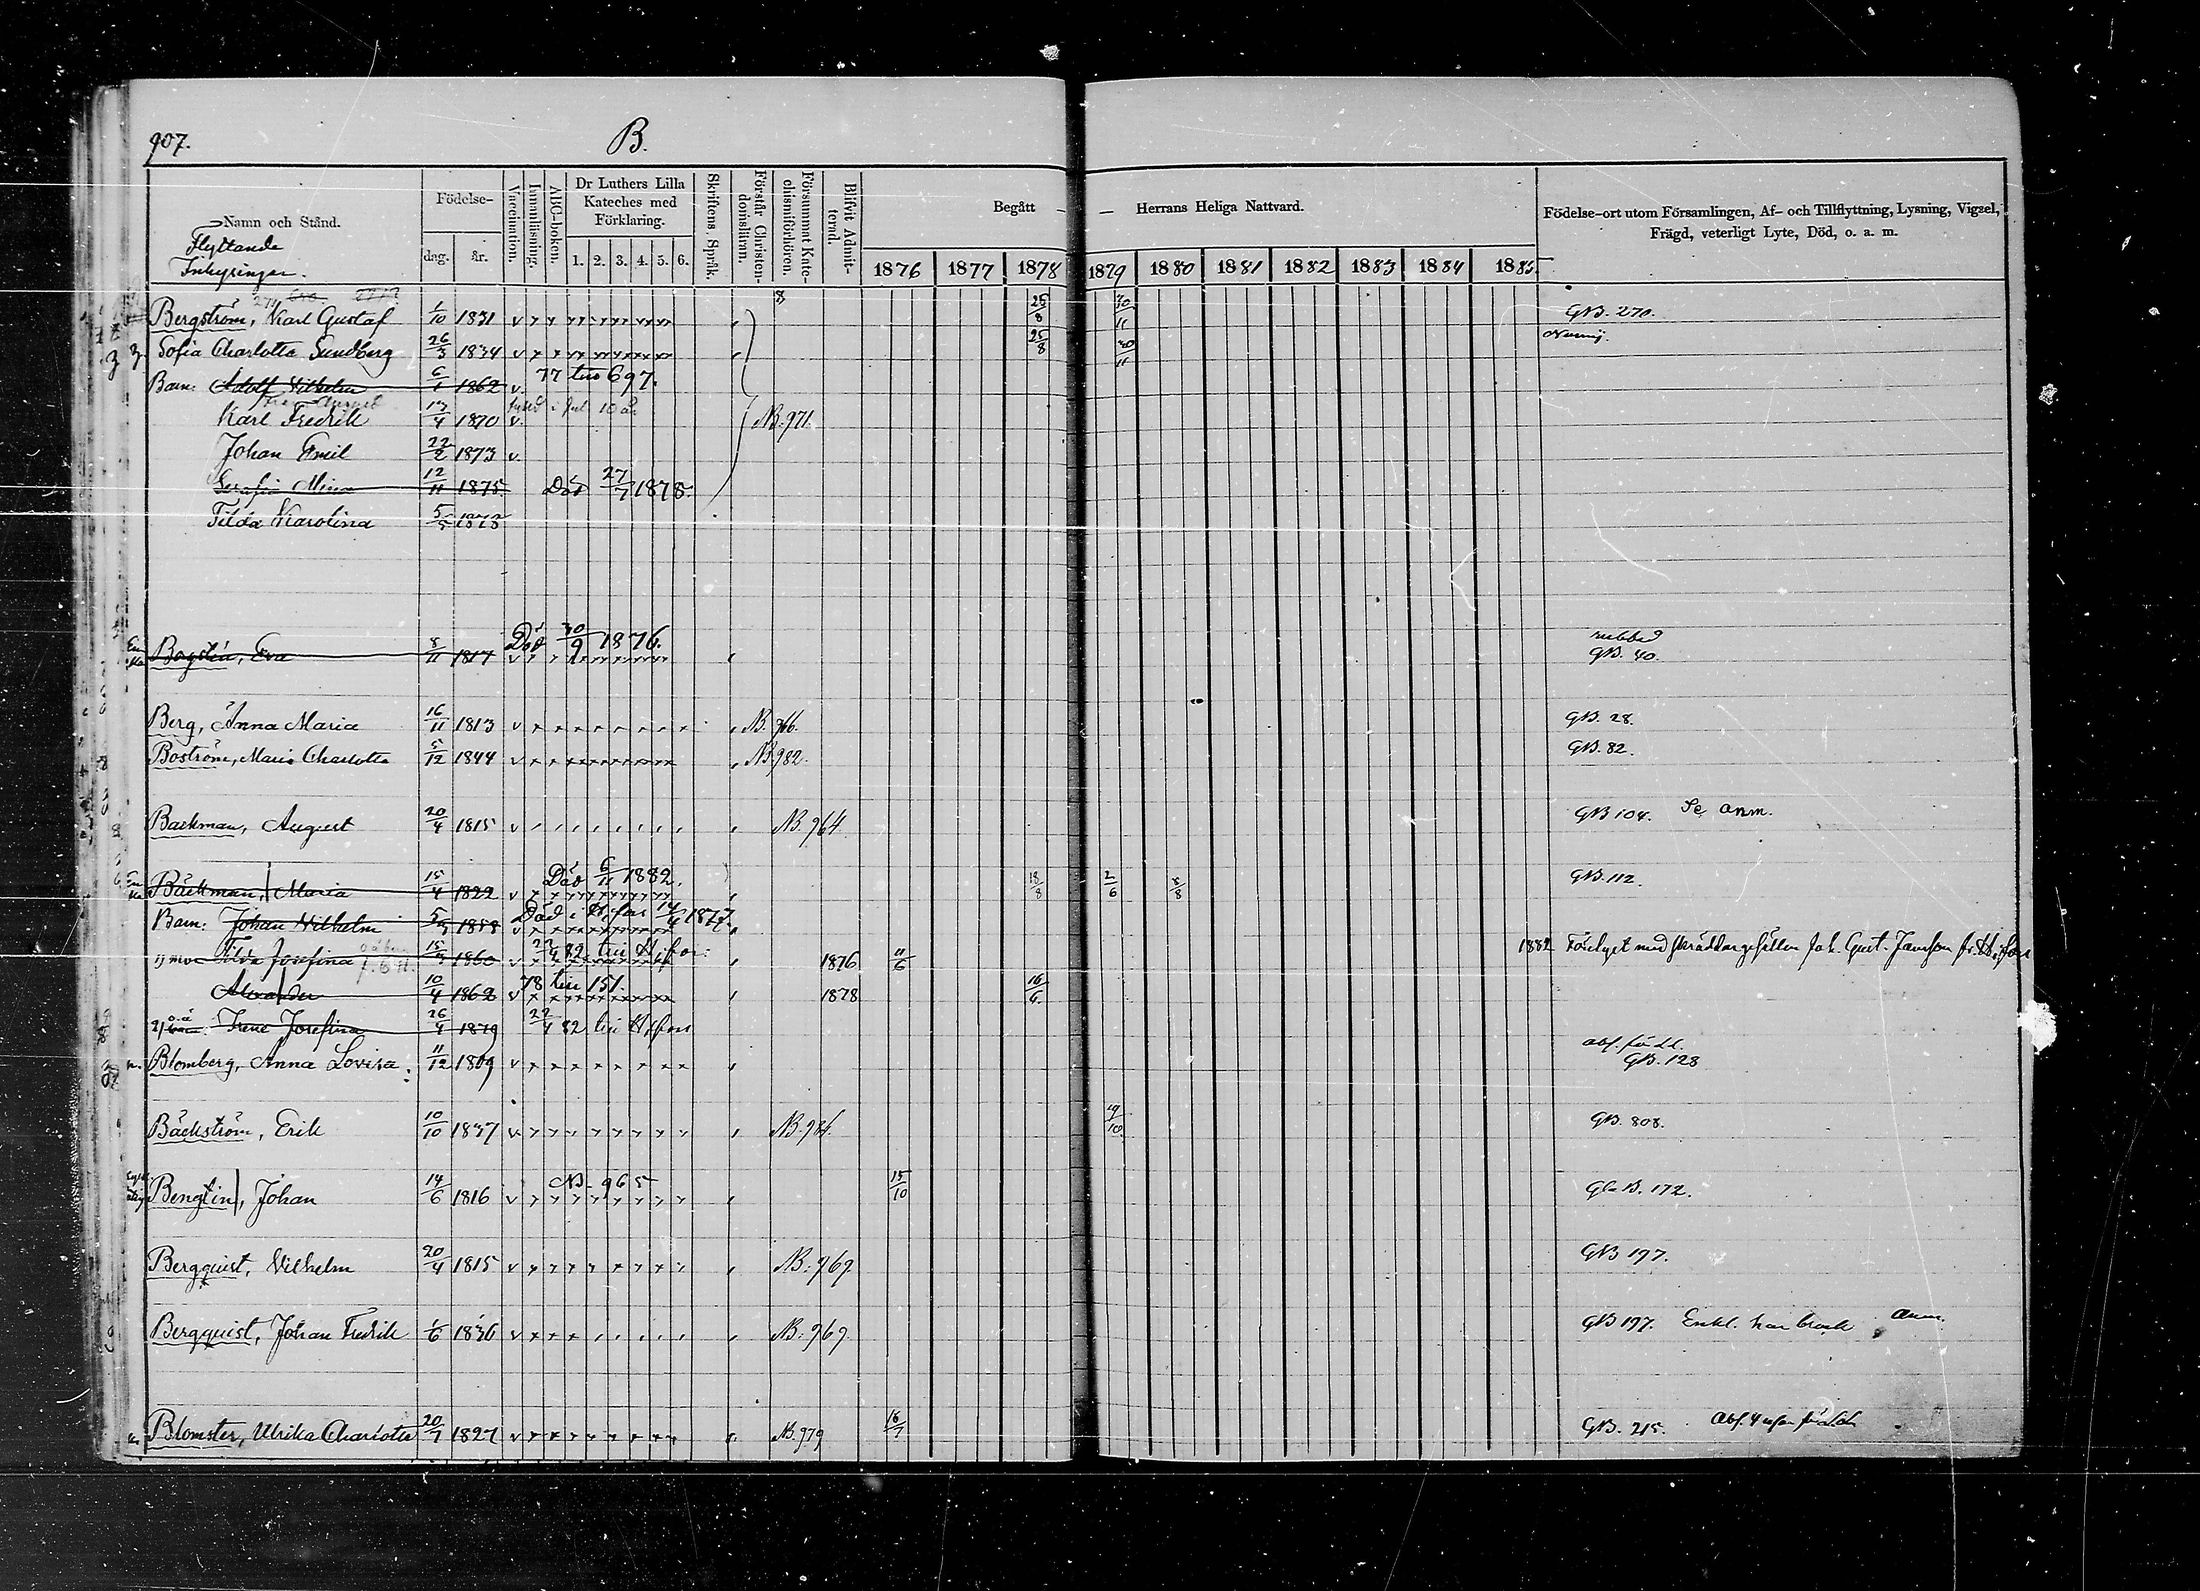 907. B.
Namn och Stånd.
Flyttande
Inhysingar.
Födelse-
dag. år.
Vaccination.
Innanläsning.
ABC-boken.
Dr Luthers Lilla
Kateches med
Förklaring.
1. 2. 3. 4. 5. 6.
Skriftens Språk.
Förstår Christen-
domsläran.
Försummat Kate-
chismiförhören.
Blifvit Admit-
terad.
Begått — Herrans Heliga Nattvard.
1876 1877 1878 1879 1880 1881 1882 1883 1884 1885
Födelse-ort utom Församlingen, Af- och Tillflyttning, Lysning, Vigsel,
Frägd, veterligt Lyte, Död, o. a. m.
Bergström, Karl Gustaf 1/10 1831 25/8 30/11 GB. 270.
Sofia Charlotta Sundberg 26/3 1834 v 25/8 30/11
Barn: Adolf Wilhelm 6/1 1862 v. 77 till 697.
Karl Fredrik 13/4 1870 v. NB. 971.
Johan Emil 22/2 1873 v.
Serafia Mina 12/11 1875 Död 27/7 1878.
Tilda Karolina 5/5 1878
Enka Eva 8/11 1817 Död 30/9 1876. GB. 40.
Berg, Anna Maria 16/11 1813 v NB. 966. GB. 28.
Boström, Maria Charlotta 5/12 1844 v NB. 982. GB. 82.
Backman, August 20/4 1815 v NB. 964. GB 104. Se anm.
Enka Bäckman, Maria 15/4 1822 v Död 6/11 1882. 18/8 2/6 8/8 GB. 112.
Barn: Johan Wilhelm 1858 v Död i H.fors 14/4 1877.
Tilda Josefina 1860 v 22/4 82 till H.fors 1876 11/6 1882 med skräddargesällen Joh. Gust.
Alexander 10/4 1862 v 78 till 151. 1878 16/6.
2) o.ä. Irene Josefina 26/4 1879 22/4 82 till H.fors
Blomberg, Anna Lovisa 11/12 1809 v GB. 128
Bäckström, Erik 10/10 1837 v NB. 986. 19/10 GB. 808.
Benglin, Johan 14/6 1816 v NB. 965 15/10 GB. 172.
Bergquist, Wilhelm 20/4 1815 v NB. 969. GB 197.
Bergquist, Johan Fredrik 1/6 1836 v NB. 969. GB 197. Enkl. har brock anm.
Blomster, Ulrika Charlotta 20/7 1827 v NB. 979 16/7 GB. 215.